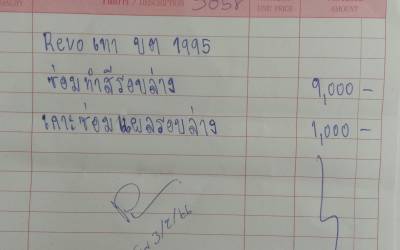 DESCRIPTION 3058 UNIT PRICE AMOUNT
Revo เทา ขต 1995
ซ่อมทำสีรอบล่าง 9,000 -
เคาะซ่อมแผลรอบล่าง 1,000 -
3/2/66